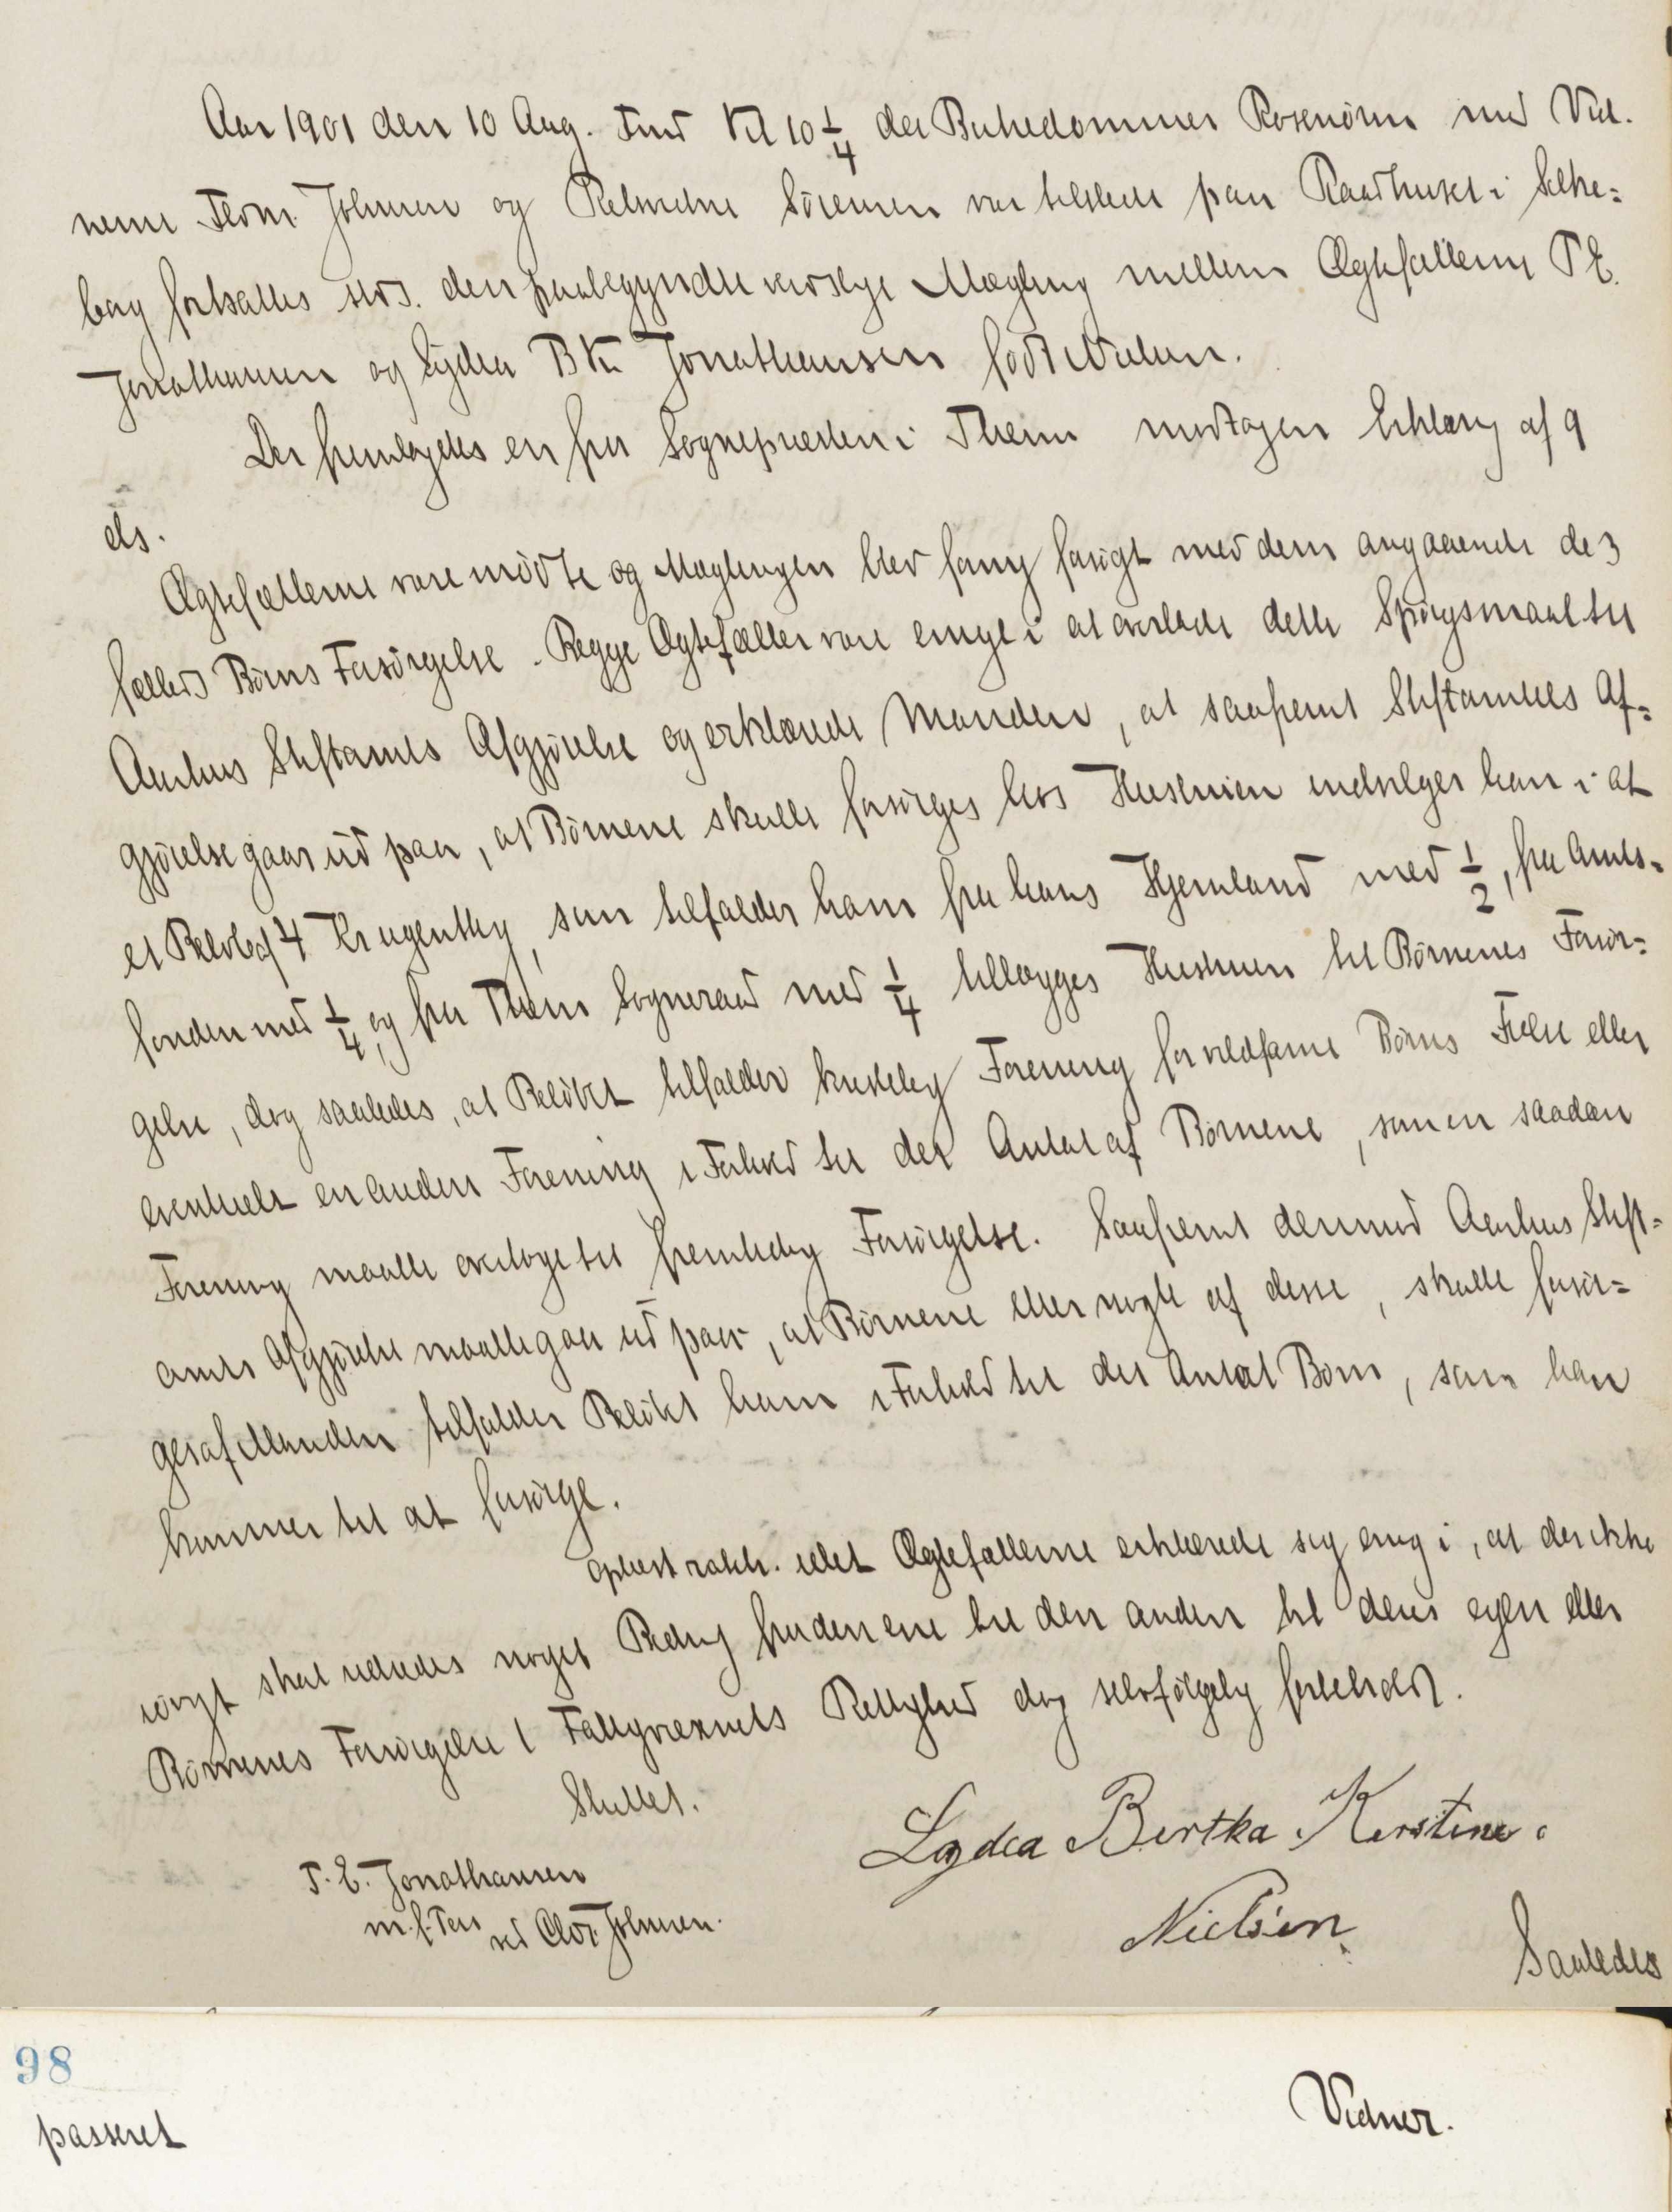 Aar 1901 den 10 Aug. Fmd Kl 10 1/4 da Birkedommer Rosenörn med Vid-
nerne Fldm. Johnsen og Sörensen var tilstede paa Raadhuset i Silke-
borg fortsattes den paabegyndte verdslige Mægling mellem Ægtefællerne T E
Jonathansen og Lydia B K Jonathansen født Nielsen.
Der fremlagdes en fra Sognepræsten i Them modtagen Erklæring af 9
ds.
Ægtefællerne vare mödte og Mæglingen blev forsögt med dem angaaende de 3
fælleds Börns Forsörgelse. Begge Ægtefæller vare enige i at overlade dette Spörgsmaal til
Aarhus Stiftamts Afgjörelse og erklærede Manden, at saafremt Stiftamtets Af-
gjörelse gaar ud paa, at Börnene skulle forsörges hos Hustruen indvilger han i at
et Belöb af 4 Kr ugentlig, som tilfalder ham fra hans Hjemland med 1/2, fra Amts-
fonden med 1/4, og fra Them Sogneraad med 1/4 tillægges Hustruen til Börnenes Forsör-
gelse, dog saaledes, at Belöbet tilfalder Kristelig Forening for vildfarne Börns Frelse eller
eventuelt en anden Forening i Forhold til det Antal af Börnene, som en saadan
Forening maatte overtage til fremtidig Forsörgelse. Saafremt derimod Aarhus Stift-
amts Afgjörelse maatte gaa ud paa, at Börnene eller nogle af disse, skulle forsör-
ges af Manden tilfalder Belöbet ham i Forhold til det Antal Börn, som han
kommer til at forsörge.
Oplæst idet Ægtefællerne erklærede sig enig i, at der ikke
iövrigt skal udredes noget Bidrag fra den ene til den anden til dens egen eller
Börnenes Forsörgelse Fattigvæsenets Rettighed dog selvfölgelig forbeholdt.
Sluttet.
T. E. Jonathansen
m. f. Pen ved Johnsen.
Lydia Birtha Kirstine
Nielsen
Saaledes
98
passeret
Vidner.